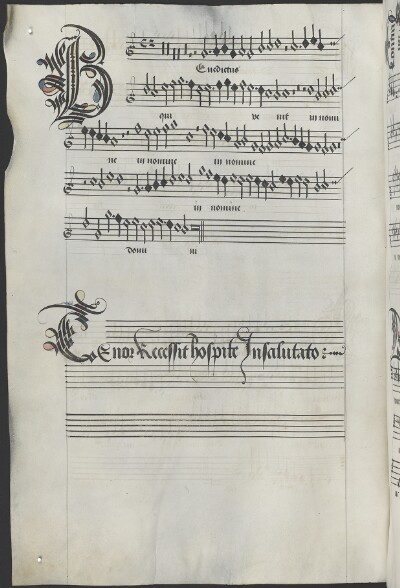 Benedictus
qui ve nit in nomi
ne in nomine in nomine
in nomine
domi ni
Tenor Recessit hospite Insalutato: